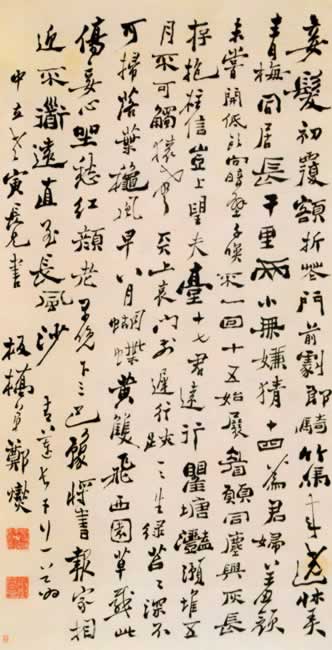 妾髮初覆額折花門前劇郎騎竹馬來遶牀弄
青梅同居長干里兩小無嫌猜十四為君婦羞顏
未嘗開低頭向暗壁千喚不一回十五始展眉願同塵與灰長
存抱柱信豈上望夫臺十七君遠行瞿塘灩澦堆五
月不可觸猿聲天上哀門前遲行跡一一生綠苔苔深不
可掃落葉秋風早八月蝴蝶黃雙飛西園草感此
傷妾心坐愁紅顏老早晚下三巴豫將書報家相
近不道遠直至長風沙 青蓮長干行一首為
中立 寅長兄書 板橋弟鄭燮